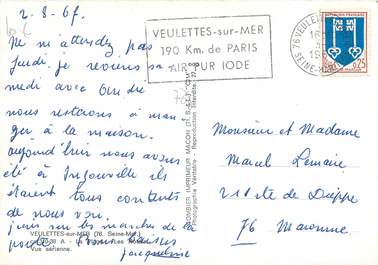 2-8-67.
Ne m'attendez pas
jeudi. je reviens sa
medi avec
nous resterons a man
ger à la maison.
aujourd'hui nous avons
été à Ingouville ils
étaient tous contents
de nous voir.
je suis sur les marches de la
poste.
Jacqueline
VEULETTES-sur-MER
190 Km. de PARIS
AIR PUR IODE
76 VEULET
SEINE-MAR
REPUBLIQUE FRANÇAISE
0,25
Monsieur et Madame
Marcel Lemaire
218 rte de Dieppe
76 Maromme
COMBIER IMPRIMEUR MACON
Photographie Véritable - Reproduction Interdite
VEULETTES-sur-MER (76. Seine-Mar.)
Vue aérienne.